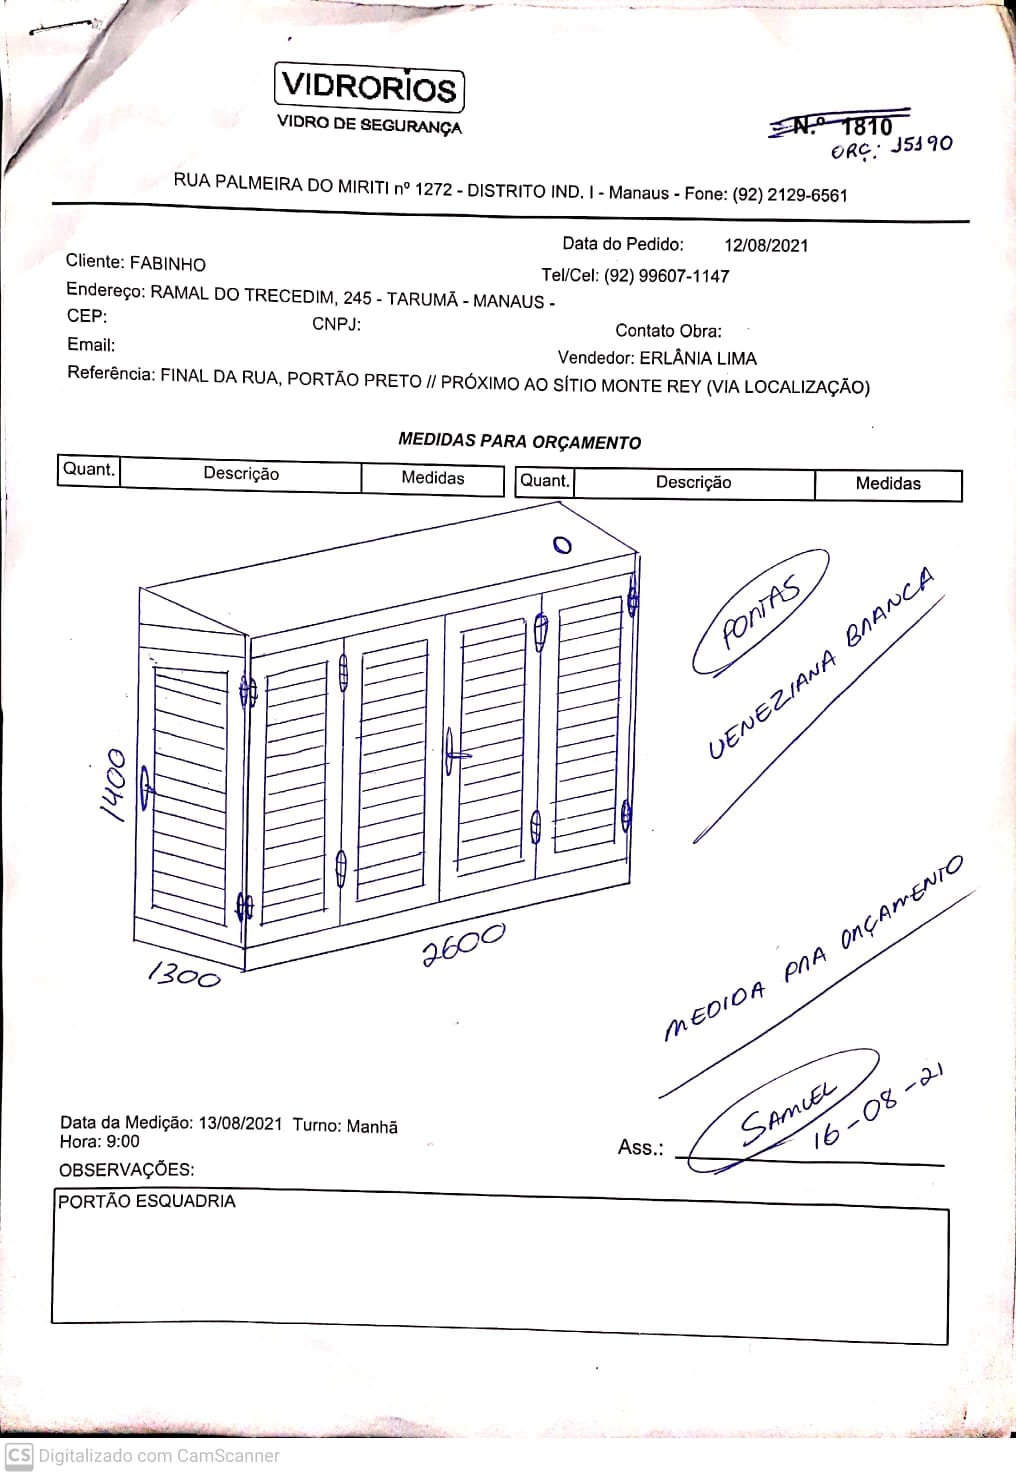 VIDRORIOS
VIDRO DE SEGURANÇA
N.º 1810
ORÇ: 15190
RUA PALMEIRA DO MIRITI nº 1272 - DISTRITO IND. I - Manaus - Fone: (92) 2129-6561
Data do Pedido: 12/08/2021
Cliente: FABINHO
Tel/Cel: (92) 99607-1147
Endereço: RAMAL DO TRECEDIM, 245 - TARUMÃ - MANAUS -
CEP:
CNPJ:
Contato Obra:
Email:
Vendedor: ERLÂNIA LIMA
Referência: FINAL DA RUA, PORTÃO PRETO // PRÓXIMO AO SÍTIO MONTE REY (VIA LOCALIZAÇÃO)
MEDIDAS PARA ORÇAMENTO
Quant. Descrição Medidas Quant. Descrição Medidas
PORTAS
VENEZIANA BRANCA
1400
1300
2600
MEDIDA PRA ORÇAMENTO
SAMUEL
16-08-21
Data da Medição: 13/08/2021 Turno: Manhã
Hora: 9:00
Ass.:
OBSERVAÇÕES:
PORTÃO ESQUADRIA
CS Digitalizado com CamScanner